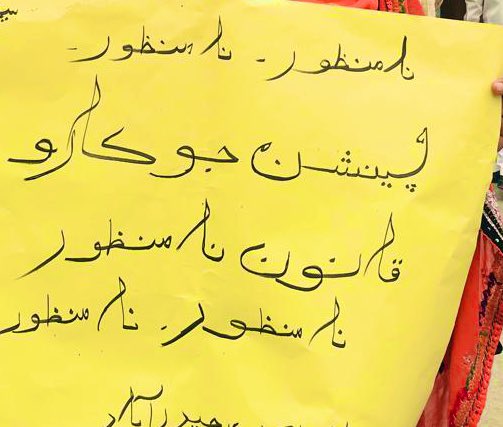 نا منظور - نا منظور -
پينشن جو ڪارو
قانون نا منظور
نا منظور - نا منظور
حيدرآباد